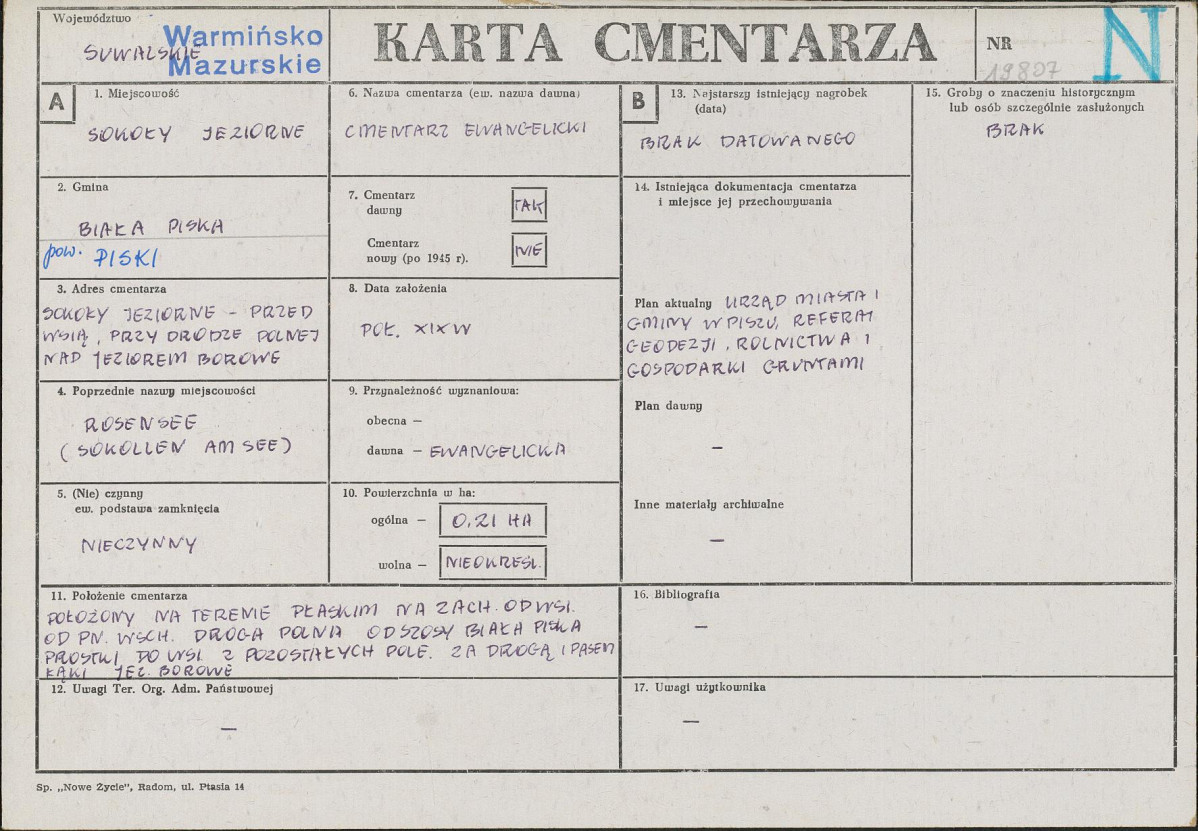 Województwo
SUWALSKIE
Warmińsko
Mazurskie
KARTA CMENTARZA
NR
19807
N
A
1. Miejscowość
SOKOŁY JEZIORNE
2. Gmina
BIAŁA PISKA
pow. PISKI
3. Adres cmentarza
SOKOŁY JEZIORNE – PRZED
WSIĄ, PRZY DRODZE POLNEJ
NAD JEZIOREM BOROWE
4. Poprzednie nazwy miejscowości
ROSENSEE
(SOKOLLEN AM SEE)
5. (Nie) czynny
ew. podstawa zamknięcia
NIECZYNNY
6. Nazwa cmentarza (ew. nazwa dawna)
CMENTARZ EWANGELICKI
7. Cmentarz
dawny
TAK
Cmentarz
nowy (po 1945 r.)
NIE
8. Data założenia
POŁ. XIX W
9. Przynależność wyznaniowa:
obecna –
dawna – EWANGELICKA
10. Powierzchnia w ha:
ogólna – 0,21 HA
wolna – NIEOKREŚL.
B
13. Najstarszy istniejący nagrobek
(data)
BRAK DATOWANEGO
14. Istniejąca dokumentacja cmentarza
i miejsce jej przechowywania
Plan aktualny URZĄD MIASTA I
GMINY W PISZU, REFERAT
GEODEZJI, ROLNICTWA I
GOSPODARKI GRUNTAMI
Plan dawny
–
Inne materiały archiwalne
–
15. Groby o znaczeniu historycznym
lub osób szczególnie zasłużonych
BRAK
11. Położenie cmentarza
POŁOŻONY NA TERENIE PŁASKIM NA ZACH. OD WSI.
OD PN. WSCH. DROGA POLNA OD SZOSY BIAŁA PISKA
PROSTKI DO WSI. Z POZOSTAŁYCH POLE. ZA DROGĄ I PASEM
ŁĄKI JEZ. BOROWE
12. Uwagi Ter. Org. Adm. Państwowej
–
16. Bibliografia
–
17. Uwagi użytkownika
–
Sp. „Nowe Życie”, Radom, ul. Ptasia 14